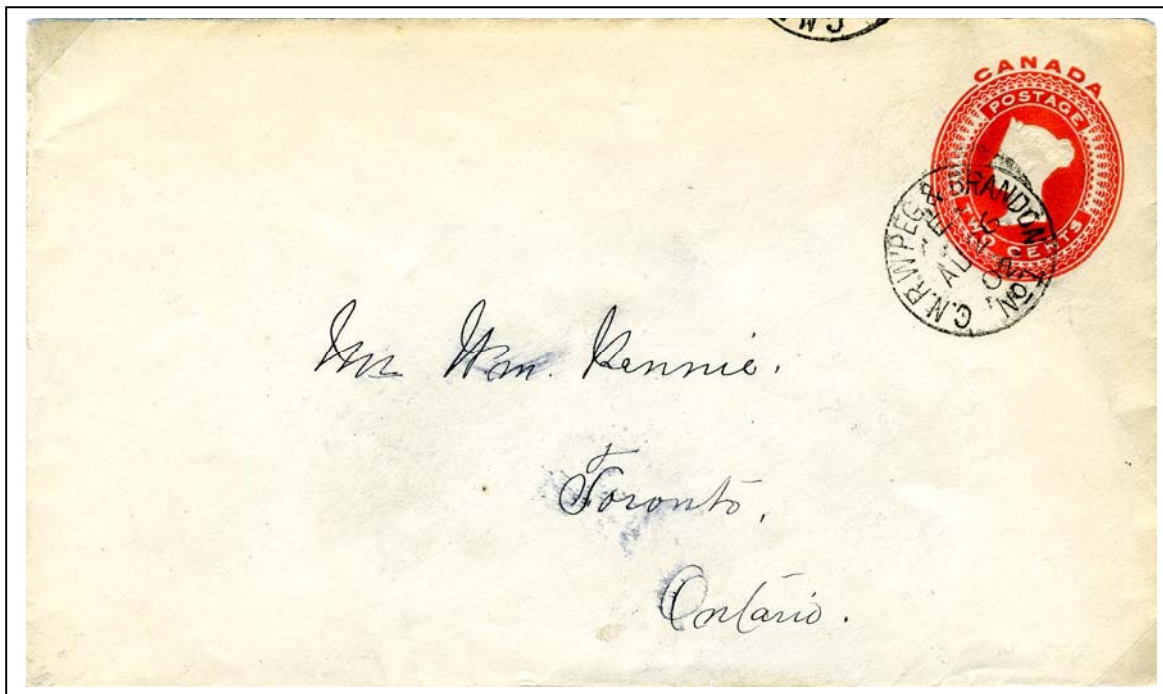 CANADA
POSTAGE
TWO CENTS
C.N.R. W'PEG. & BRANDON
Mr. Wm. Rennie.
Toronto,
Ontario.